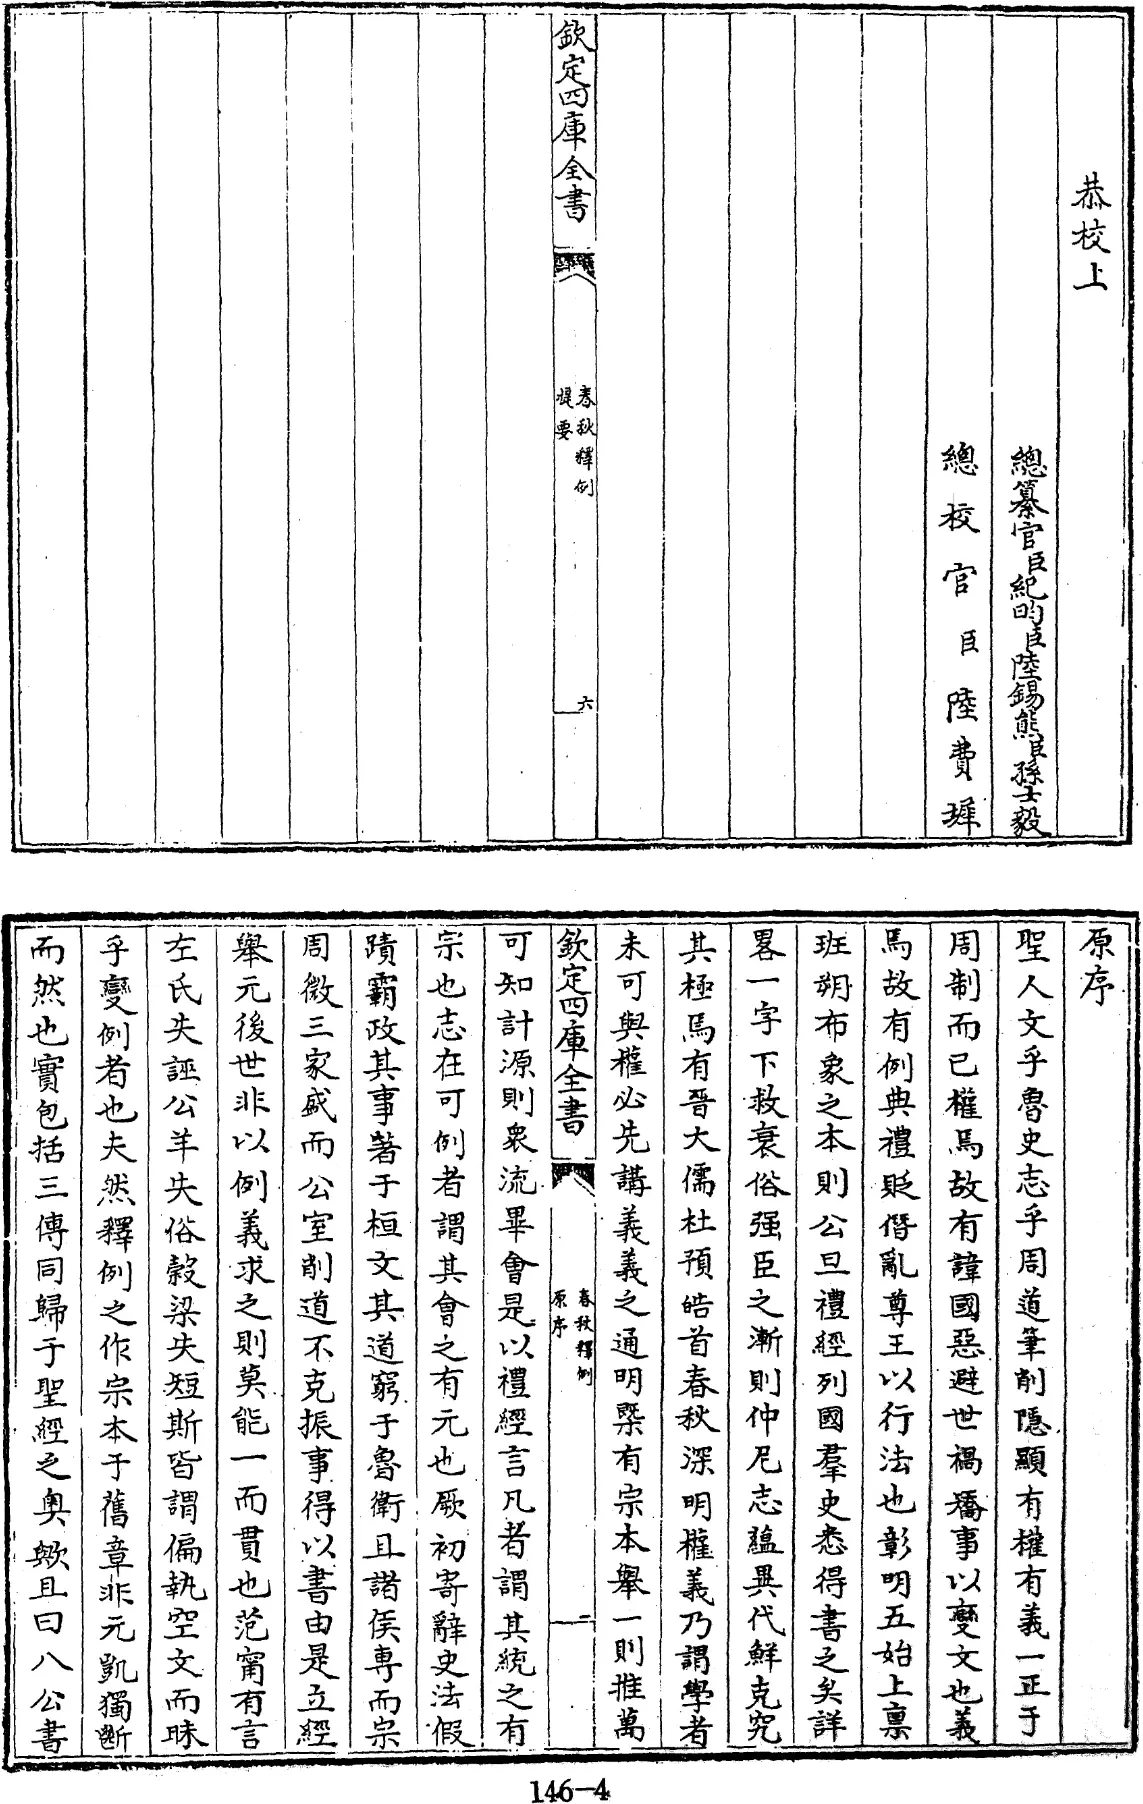 恭校上
總纂官臣紀昀臣陸錫熊臣孫士毅
總校官臣陸費墀
欽定四庫全書
春秋釋例
提要
六
原序
聖人文乎魯史志乎周道筆削隱顯有權有義一正于
周制而已權焉故有諱國惡避世禍矯事以變文也義
焉故有例典禮貶僭亂尊王以行法也彰明五始上禀
班朔布象之本則公旦禮經列國羣史悉得書之矣詳
畧一字下救衰俗强臣之漸則仲尼志蘊異代鮮克究
其極焉有晉大儒杜預皓首春秋深明權義乃謂學者
未可與權必先講義義之通明槩有宗本舉一則推萬
欽定四庫全書
春秋釋例
原序
二
可知計源則衆流畢會是以禮經言凡者謂其統之有
宗也志在可例者謂其會之有元也厥初寄辭史法假
蹟霸政其事著于桓文其道窮于魯衛且諸侯專而宗
周微三家盛而公室削道不克振事得以書由是立經
舉元後世非以例義求之則莫能一而貫也范甯有言
左氏失誣公羊失俗穀梁失短斯皆謂偏執空文而昧
乎變例者也夫然釋例之作宗本于舊章非元凱獨斷
而然也實包括三傳同歸于聖經之奥歟且曰八公書
146-4